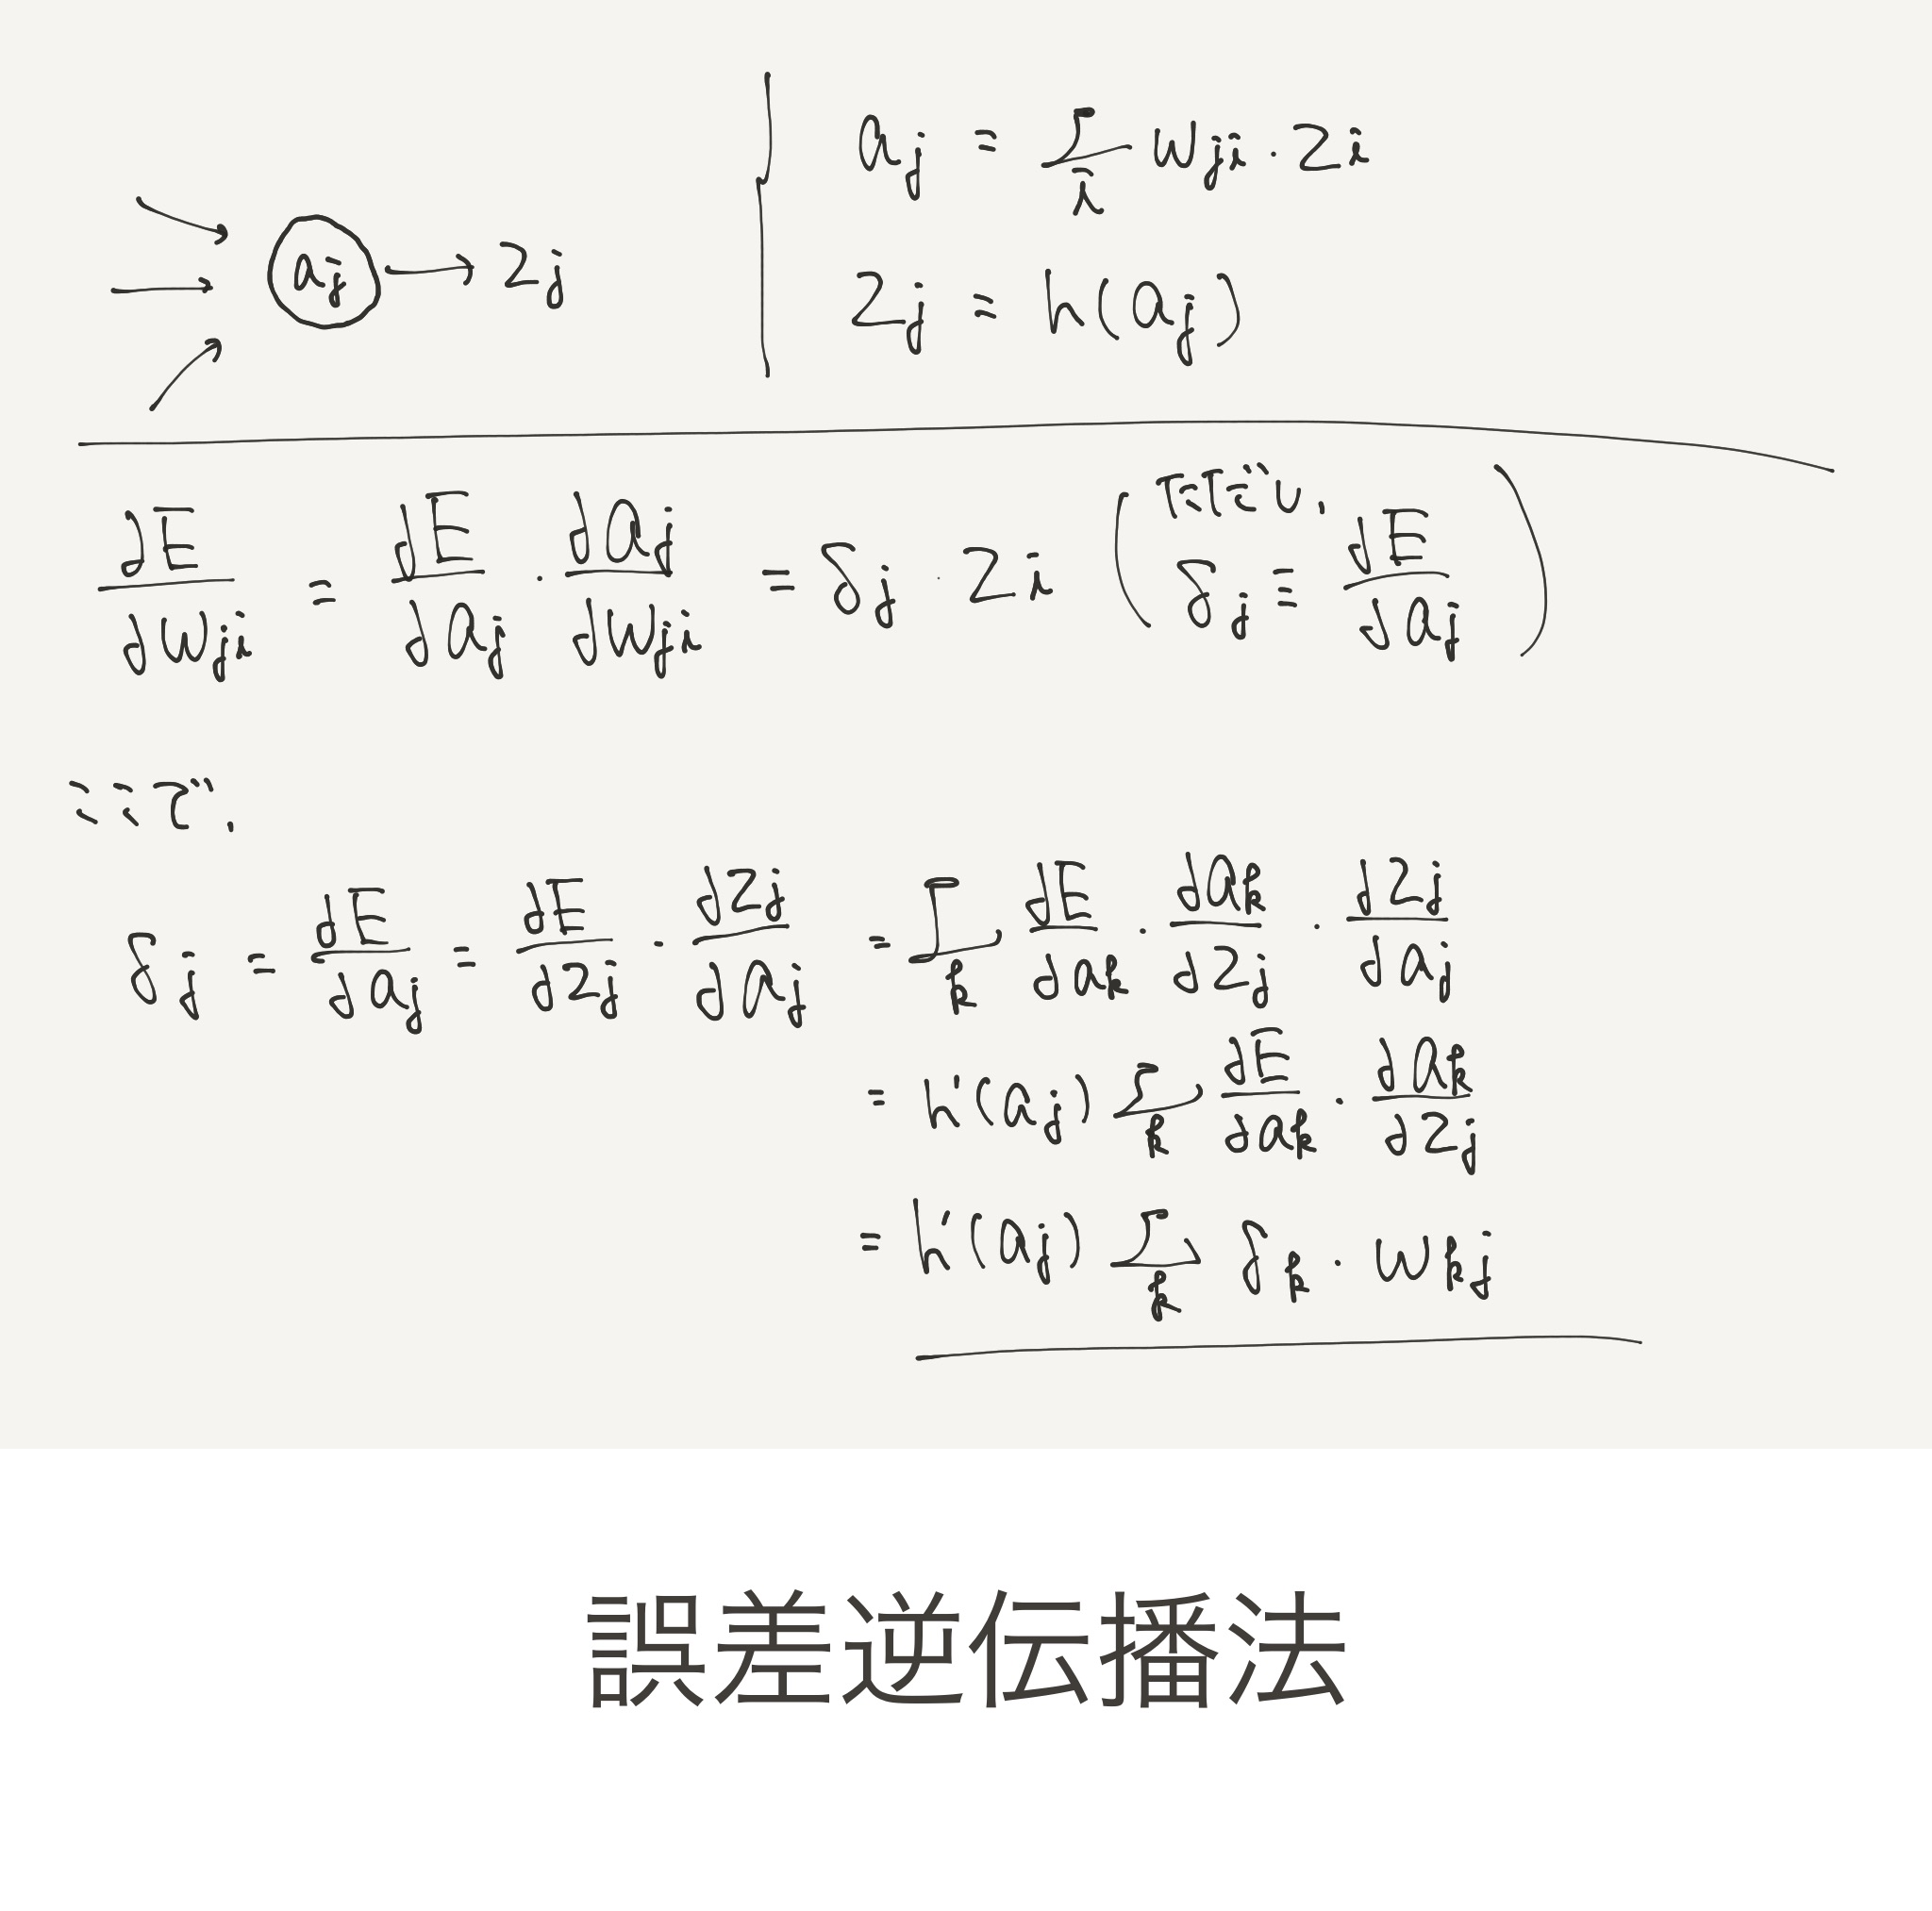 aj → zj
aj = Σ_i wji · zi
zj = h(aj)
∂E/∂wji = ∂E/∂aj · ∂aj/∂wji = δj · zi (ただし, δj ≡ ∂E/∂aj)
ここで,
δj = ∂E/∂aj = ∂E/∂zj · ∂zj/∂aj = Σ_k ∂E/∂ak · ∂ak/∂zj · ∂zj/∂aj
= h'(aj) Σ_k ∂E/∂ak · ∂ak/∂zj
= h'(aj) Σ_k δk · wkj
誤差逆伝播法